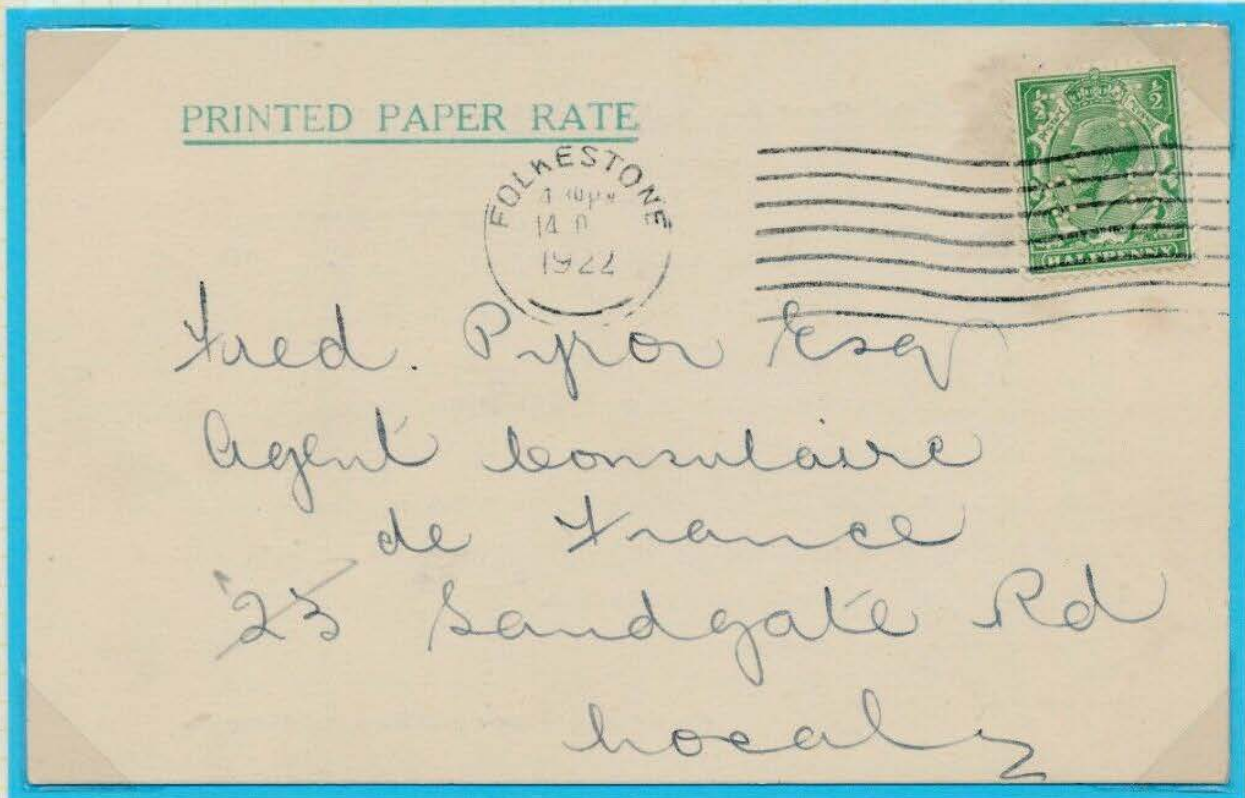 PRINTED PAPER RATE
FOLKESTONE
14
1922
½ ½
HALFPENNY
Fred. Pyror Esq
Agent Consulaire
de France
23 Sandgate Rd
Local